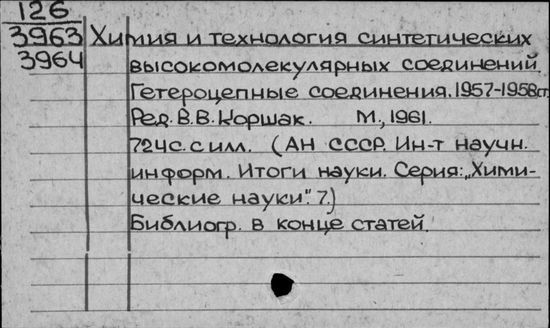 126
3963 Химия и технология синтетических
3964 высокомолекулярных соединений.
Гетероцепные соединения. 1957-1958гг.
Ред. В.В. Коршак. М., 1961.
724с. с илл. (АН СССР. Ин-т научн.
информ. Итоги науки. Серия: „Хими-
ческие науки". 7.)
Библиогр. в конце статей.